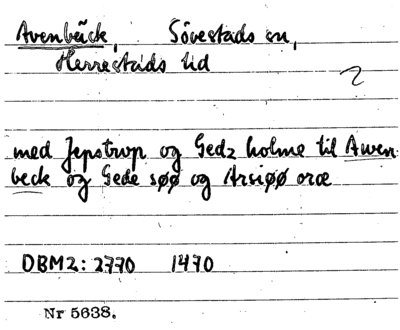 Avenbäck, Sövestads sn,
Herrestads hd
2
med Jepstrup og Gedz holme til Awen-
beck og Gede søø og Arsiøø oræ
DBM2: 2770 1470
Nr 5638.